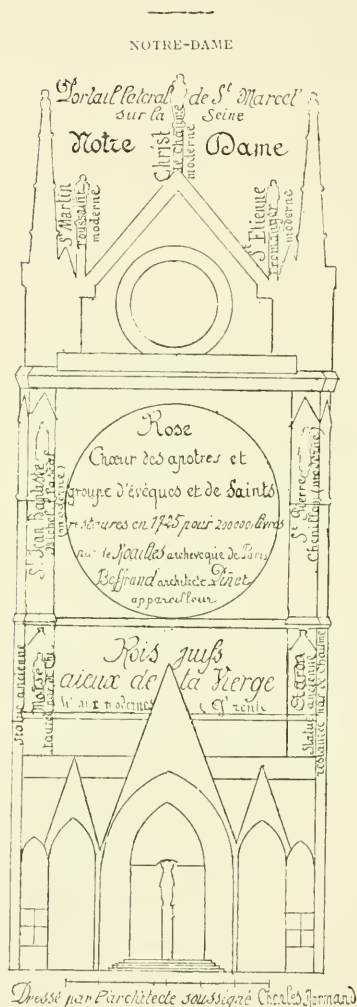 NOTRE-DAME
Portail lateral de St Marcel
sur la Seine
Notre Dame
Christ
de Chaume
moderne
St Martin
Toussaint
moderne
St Etienne
Fromanger
moderne
Rose
Chœur des apotres et
groupe d'évèques et de Saints
restaures en 1725 pour livres
par de Noailles archeveque de Paris
Boffrand architecte Pinet
appareilleur
St Jean Baptiste
Michel Pascal
(moderne)
St Pierre
Chenillon (moderne)
Rois juifs
aieux de la Vierge
modernes
statue ancienne
Moïse
Aaron
Statue ancienne
restaurée par de Chaume
Dressé par l'architecte soussigné Charles Normand